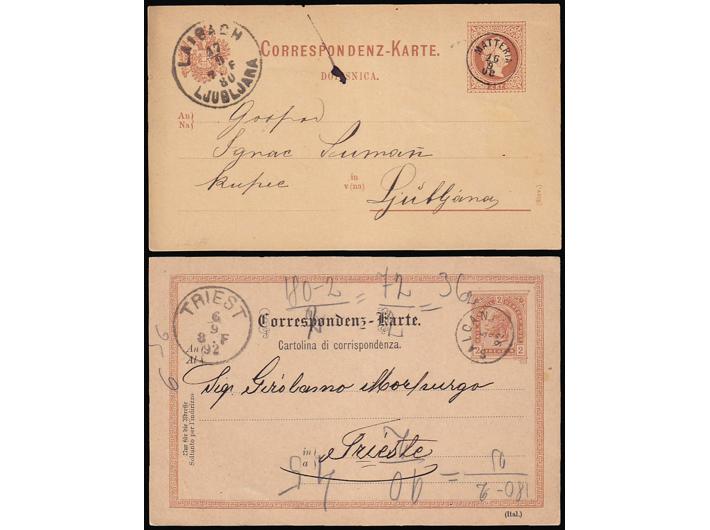 LAIBACH
17
9
F
80
LJUBLJANA
CORRESPONDENZ-KARTE.
DOPISNICA.
MATTERIA
16
9
An
Na
Gospod
Ignac Šuman
kupec
in
v (na)
Ljubljana
TRIEST
6
9
8. F
92
Correspondenz-Karte.
Cartolina di corrispondenza.
80-2
2
= 72
2
= 36
2
2
2
An
A
Sig. Girolamo Morpurgo
in
a
Trieste
Nur für die Adresse
Soltanto per l'indirizzo
180-2
(Ital.)